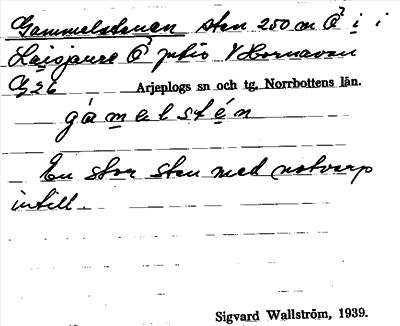 Gammelstenen sten 250 m Ö i i
Laisjaure Ö V Hornavan
G26 Arjeplogs sn och tg, Norrbottens län.
gámalstén
En stor sten med notvarp
intill.
Sigvard Wallström, 1939.